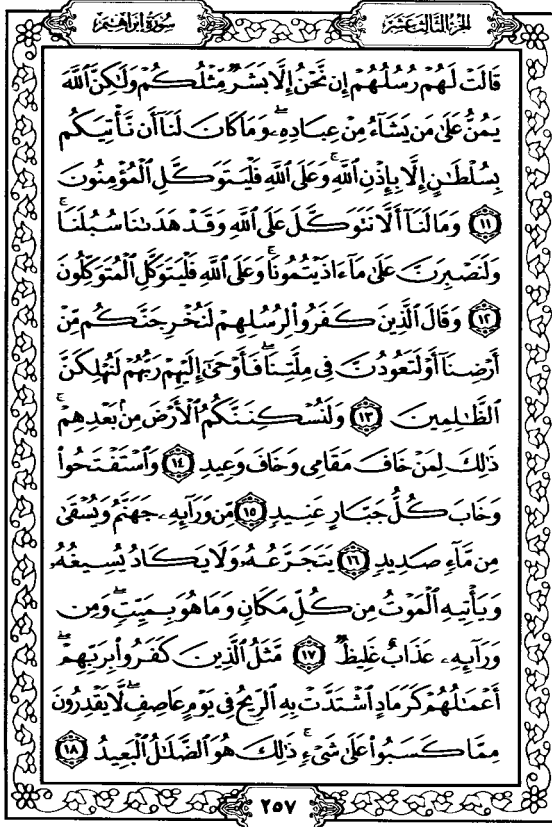 سُورَةُ إِبْرَاهِيم
الجُزْءُ الثَّالِثَ عَشَرَ
قَالَتْ لَهُمْ رُسُلُهُمْ إِن نَّحْنُ إِلَّا بَشَرٌ مِّثْلُكُمْ وَلَٰكِنَّ ٱللَّهَ
يَمُنُّ عَلَىٰ مَن يَشَآءُ مِنْ عِبَادِهِۦۖ وَمَا كَانَ لَنَآ أَن نَّأْتِيَكُم
بِسُلْطَٰنٍ إِلَّا بِإِذْنِ ٱللَّهِۚ وَعَلَى ٱللَّهِ فَلْيَتَوَكَّلِ ٱلْمُؤْمِنُونَ
١١ وَمَا لَنَآ أَلَّا نَتَوَكَّلَ عَلَى ٱللَّهِ وَقَدْ هَدَىٰنَا سُبُلَنَاۚ
وَلَنَصْبِرَنَّ عَلَىٰ مَآ ءَاذَيْتُمُونَاۚ وَعَلَى ٱللَّهِ فَلْيَتَوَكَّلِ ٱلْمُتَوَكِّلُونَ
١٢ وَقَالَ ٱلَّذِينَ كَفَرُوا۟ لِرُسُلِهِمْ لَنُخْرِجَنَّكُم مِّنْ
أَرْضِنَآ أَوْ لَتَعُودُنَّ فِى مِلَّتِنَاۖ فَأَوْحَىٰٓ إِلَيْهِمْ رَبُّهُمْ لَنُهْلِكَنَّ
ٱلظَّٰلِمِينَ ١٣ وَلَنُسْكِنَنَّكُمُ ٱلْأَرْضَ مِنۢ بَعْدِهِمْۚ
ذَٰلِكَ لِمَنْ خَافَ مَقَامِى وَخَافَ وَعِيدِ ١٤ وَٱسْتَفْتَحُوا۟
وَخَابَ كُلُّ جَبَّارٍ عَنِيدٍ ١٥ مِّن وَرَآئِهِۦ جَهَنَّمُ وَيُسْقَىٰ
مِن مَّآءٍ صَدِيدٍ ١٦ يَتَجَرَّعُهُۥ وَلَا يَكَادُ يُسِيغُهُۥ
وَيَأْتِيهِ ٱلْمَوْتُ مِن كُلِّ مَكَانٍ وَمَا هُوَ بِمَيِّتٍۖ وَمِن
وَرَآئِهِۦ عَذَابٌ غَلِيظٌ ١٧ مَّثَلُ ٱلَّذِينَ كَفَرُوا۟ بِرَبِّهِمْۖ
أَعْمَٰلُهُمْ كَرَمَادٍ ٱشْتَدَّتْ بِهِ ٱلرِّيحُ فِى يَوْمٍ عَاصِفٍۖ لَّا يَقْدِرُونَ
مِمَّا كَسَبُوا۟ عَلَىٰ شَىْءٍۚ ذَٰلِكَ هُوَ ٱلضَّلَٰلُ ٱلْبَعِيدُ ١٨
٢٥٧